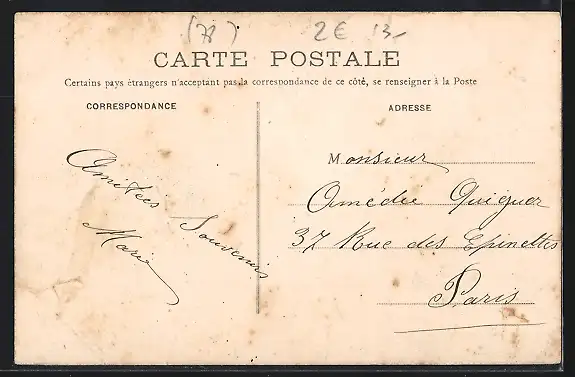 (78) 2€ 13-
CARTE POSTALE
Certains pays étrangers n'acceptant pas la correspondance de ce côté, se renseigner à la Poste
CORRESPONDANCE
Amitiées
Souvenirs
Marie
ADRESSE
Monsieur
Amédée Quiguer
37 Rue des Epinettes
Paris